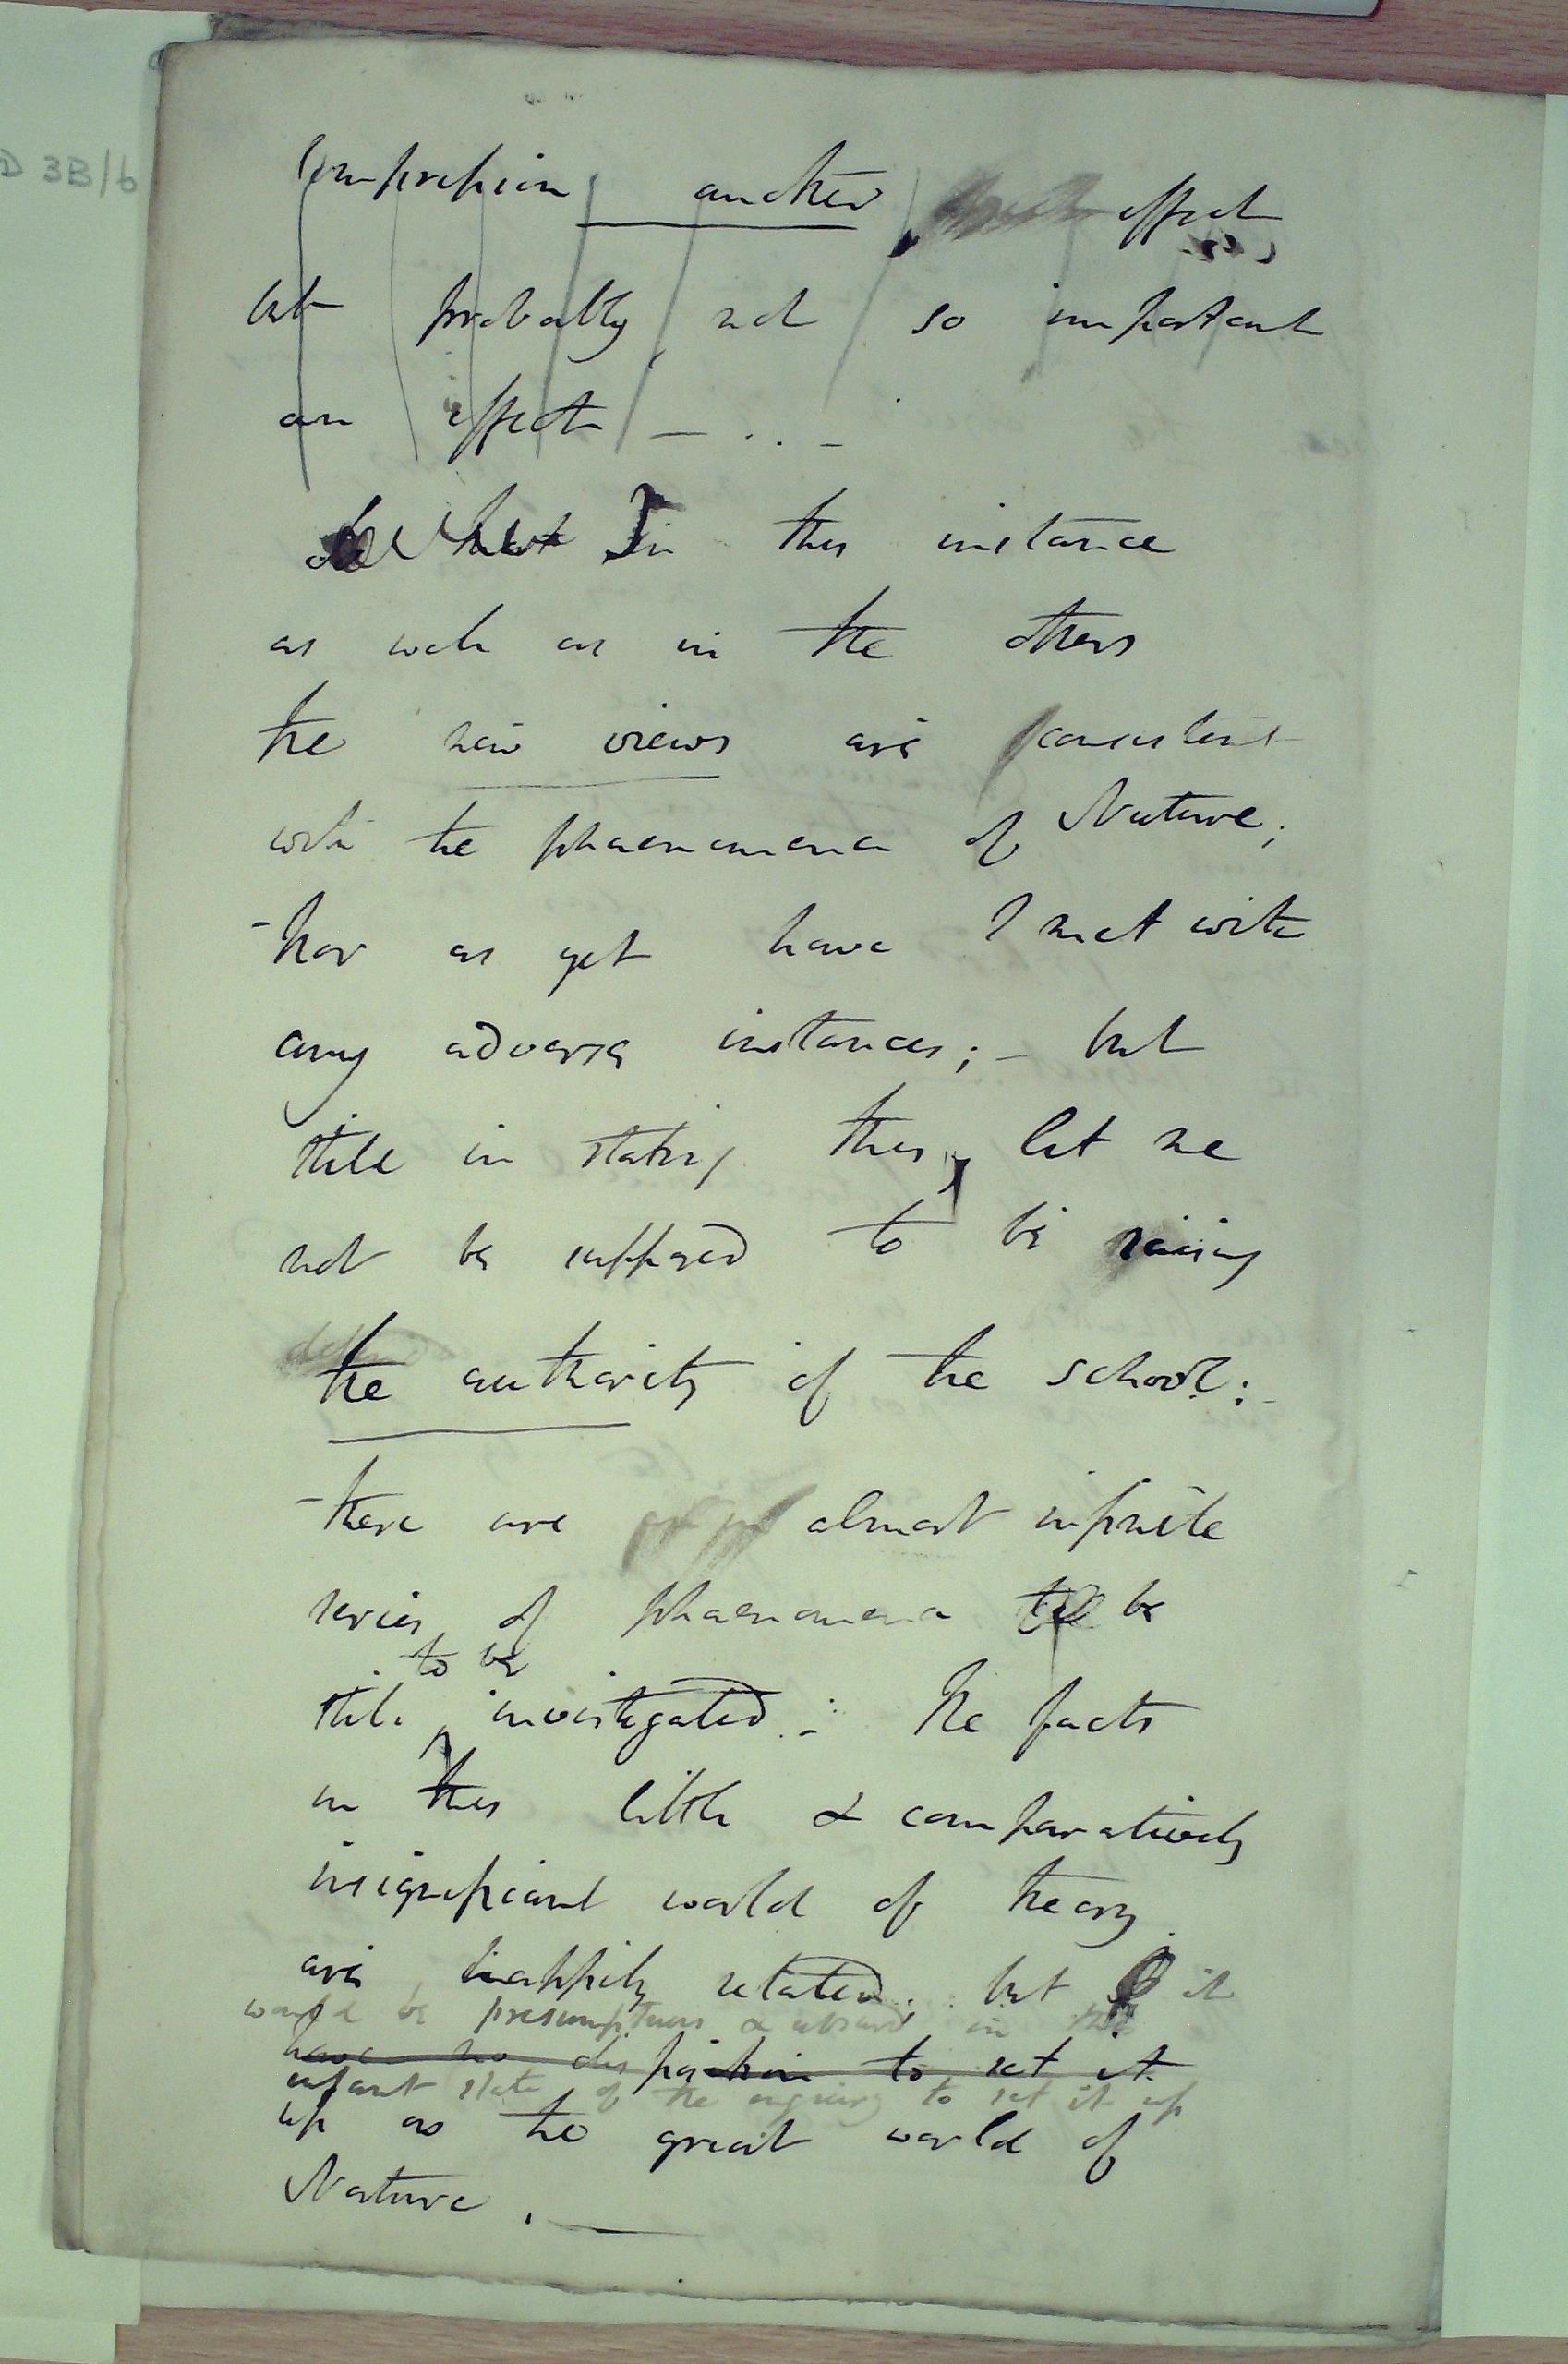 D 3B/6
Compression another effect
but probably not so important
an effect — . . –
In this instance
as well as in the others
the new views are consistent
with the phaenomena of Nature;
– Nor as yet have I met with
any adverse instances; – but
still in stating this, let me
not be supposed to be
the authority of the school: –
– there are almost infinite
series of phaenomena to be
to be
still investigated. – The facts
in this little & comparatively
insignificant world of theory
are happily related; but it
would be presumptuous & absurd in the
have no disposition to set it
infant state of the enquiry to set it up
up as the great world of
Nature. —